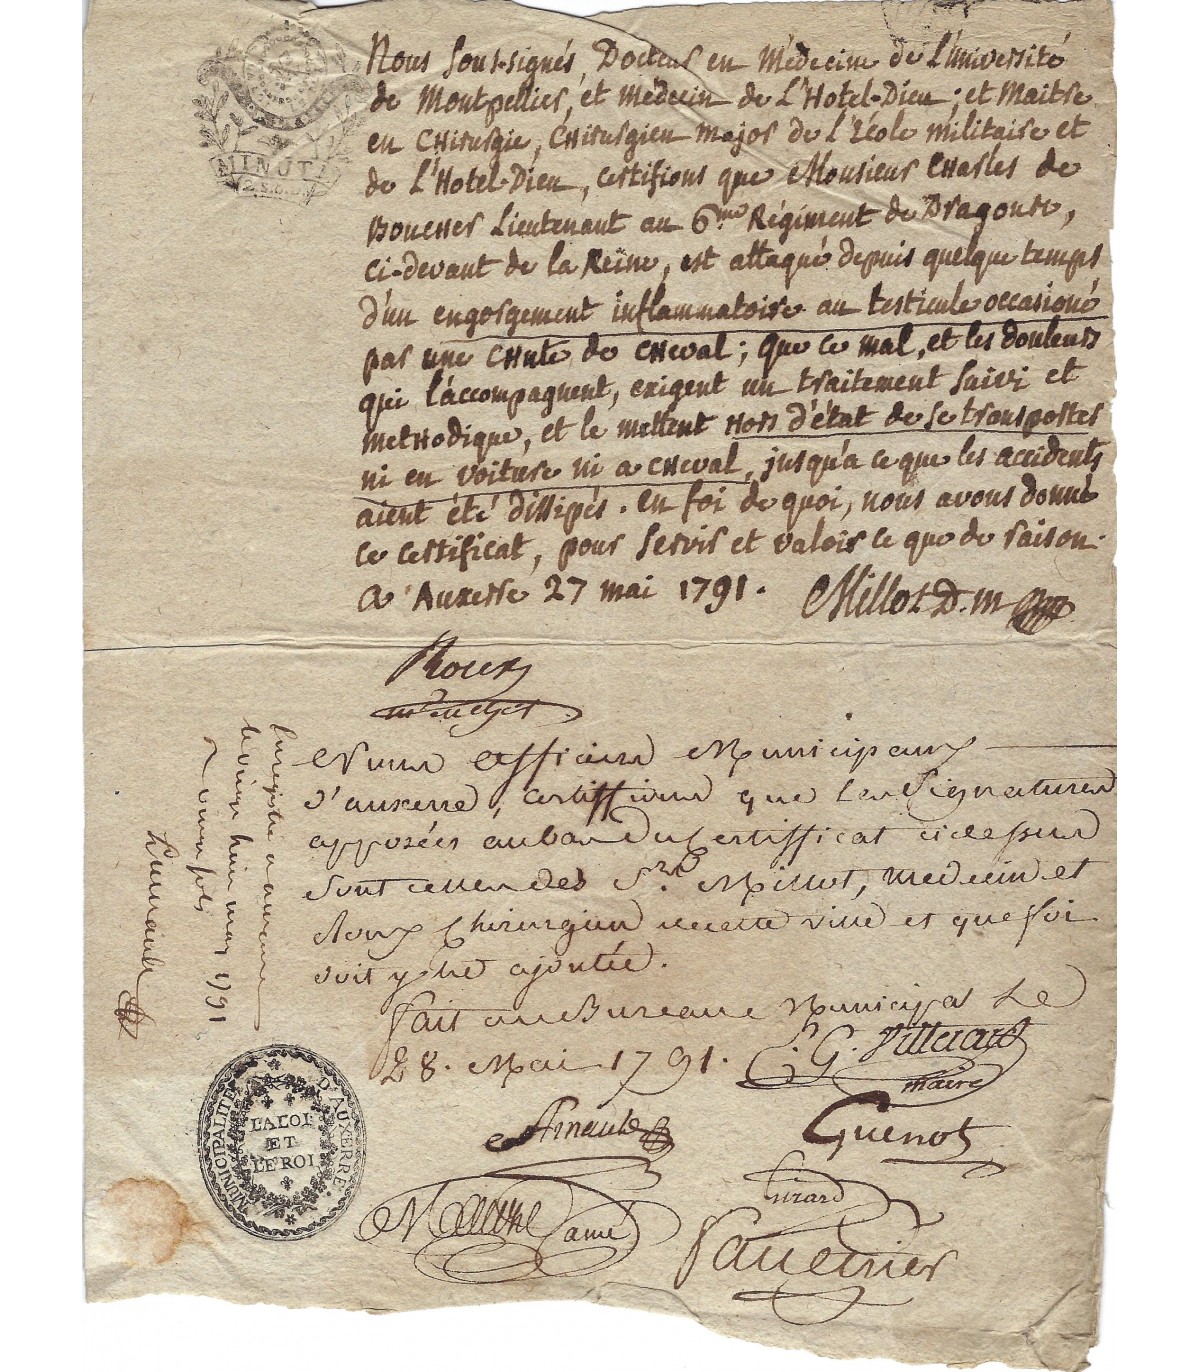 MINUT
2.S.6.D.
Nous sous-signés, Docteur en Médecine de l'université
de Montpellier, et Médecin de l'Hotel-Dieu; et Maitre
en chirurgie, chirurgien major de l'École militaire et
de l'Hotel-Dieu, certifions que Monsieur Charles de
Boucher Lieutenant au 6me Régiment de Dragons,
ci-devant de la Reine, est attaqué depuis quelque temps
d'un engorgement inflammatoire au testicule occasioné
par une chute de cheval; que ce mal, et les douleurs
qui l'accompagnent, exigent un traitement suivi et
methodique, et le mettent hors d'état de se transporter
ni en voiture ni a cheval, jusqu'a ce que les accidents
aient été dissipés. en foi de quoi, nous avons donné
ce certificat, pour servir et valoir ce que de raison.
a Auxerre 27 mai 1791. Millot D.m
Roux
Nous officiers Municipaux
d'auxerre, certiffions que les Signatures
apposées au bas du Certifficat cidessus
sont celles des Srs. Millot, médecin et
Roux Chirurgien decette ville et que foi
doit y être ajoutée.
fait au Bureau Municipal Le
28. Mai 1791. Villetard
maire
Arnault Guenot
Girard
ainé
Enregistré a auxerre
le vingt huit may 1791
MUNICIPALITÉ D'AUXERRE.
LA LOI
ET
LE ROI